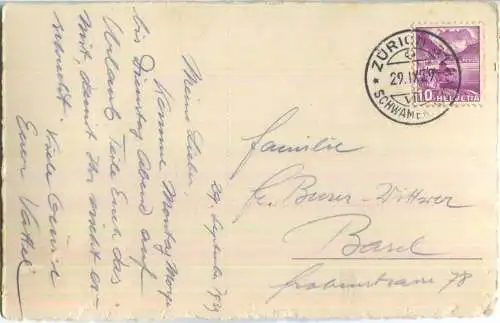 29. September 1939
Meine Lieben,
Komme Montag Morgen
bis Dienstag Abend auf
Urlaub. Teile Euch das
mit, damit Ihr nicht er-
schreckt. Viele Grüsse
Euer Vater
ZÜRICH
29.IX.39
SCHWAMEN
10 HELVETIA
Familie
Fr. Buser-Wittwer
Basel
strasse 78